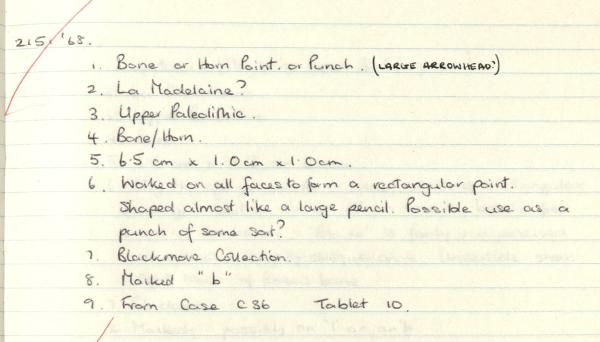 215. '68.
1. Bone or Horn Point. or Punch. (LARGE ARROWHEAD?)
2. La Madelaine?
3. Upper Paleolithic.
4. Bone/Horn.
5. 6.5 cm x 1.0cm x 1.0cm.
6. Worked on all faces to form a rectangular point.
Shaped almost like a large pencil. Possible use as a
punch of some sort?
7. Blackmore Collection.
8. Marked "b"
9. From Case C36 Tablet 10.